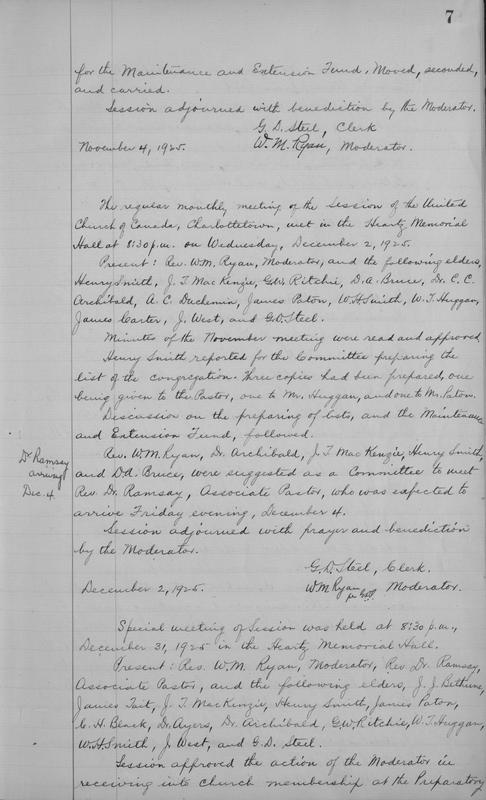 7
for the Maintenance and Extension Fund. Moved, seconded,
and carried.
Session adjourned with benediction by the Moderator.
G. D. Steel, Clerk
November 4, 1925. W. M. Ryan, Moderator.
The regular monthly meeting of the Session of the United
Church of Canada, Charlottetown, met in the Heartz Memorial
Hall at 8:30 p.m. on Wednesday, December 2, 1925.
Present: Rev. W.M. Ryan, Moderator, and the following elders,
Henry Smith, J. T. MacKenzie, G.W. Ritchie, D.A. Bruce, Dr. C.C.
Archibald, A. C. Duchemin, James Paton, W.H. Smith, W.T. Huggan,
James Carter, J. West, and G.D. Steel.
Minutes of the November meeting were read and approved.
Henry Smith reported for the Committee preparing the
list of the congregation. Three copies had been prepared, one
being given to the Pastor, one to Mr. Huggan, and one to Mr. Paton.
Discussion on the preparing of lists, and the Maintenance
and Extension Fund, followed.
Dr Ramsay
arriving
Dec. 4
Rev. W.M. Ryan, Dr. Archibald, J. T. MacKenzie, Henry Smith,
and D.A. Bruce, were suggested as a Committee to meet
Rev. Dr. Ramsay, Associate Pastor, who was expected to
arrive Friday evening, December 4.
Session adjourned with prayer and benediction
by the Moderator.
G. D. Steel, Clerk.
December 2, 1925. W M Ryan Moderator.
per
Special meeting of Session was held at 8:30 p.m.,
December 31, 1925 in the Heartz Memorial Hall.
Present: Rev. W.M. Ryan, Moderator, Rev Dr. Ramsay,
Associate Pastor, and the following elders, J. J. Bethune,
James Tait, J. T. MacKenzie, Henry Smith, James Paton,
C. H. Black, Dr. Ayers, Dr. Archibald, G.W. Ritchie, W.T. Huggan,
W.H. Smith, J. West, and G.D. Steel.
Session approved the action of the Moderator in
receiving into church membership at the Preparatory